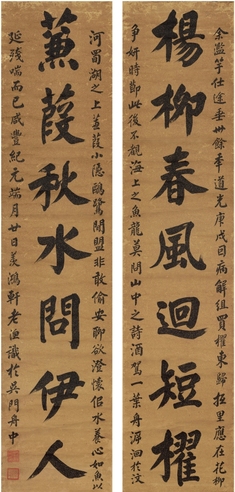 余濫竽仕途垂卅餘年道光庚戌因病解組買櫂東歸擬里應在花柳
楊柳春風迴短櫂
爭妍時節此後不觀海上之魚龍莫問山中之詩酒駕一葉舟溽洄於汶
河蜀湖之上並葭小隱鷗鷺閒盟非敢偷安聊欲澄懷侶水養心如魚以
蒹葭秋水問伊人
延殘喘而已咸豐紀元端月廿日羨鴻軒老漁識於吳門舟中